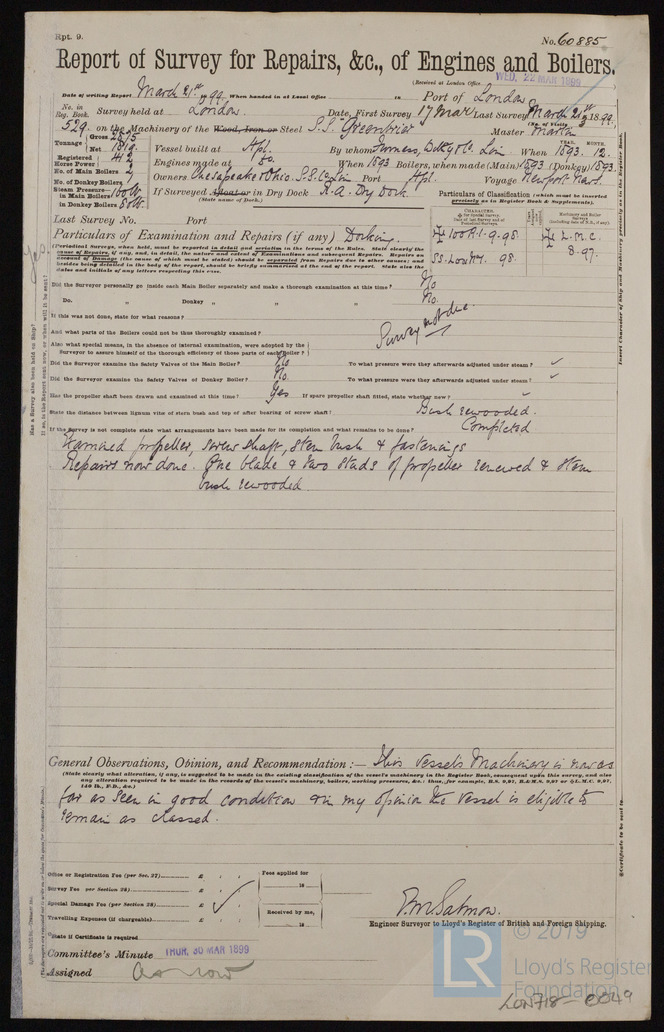 Rpt. 9.
No. 60885
Report of Survey for Repairs, &c., of Engines and Boilers.
(Received at London Office WED. 22 MAR 1899
Date of writing Report March 21st 1899 When handed in at Local Office 18 Port of London
No. in Reg. Book. Survey held at London Date, First Survey 17 Mar Last Survey March 21st 1899
(No. of Visits 3
529 on the Machinery of the Wood, Iron or Steel S.S. Greenbrier Master Martin
Tonnage Gross 2875
Net 1819
Vessel built at Hpl. By whom Furness, Withy & Co. Lim. When 1893. 12.
YEAR. MONTH.
Registered Horse Power 412
Engines made at do. When 1893 Boilers, when made (Main) 1893 (Donkey) 1893
No. of Main Boilers 2
Owners Chesapeake & Ohio. S.S. Co Lim Port Hpl. Voyage Newport News.
No. of Donkey Boilers 1
Steam Pressure—
in Main Boilers 160 lb
in Donkey Boilers 80 lb
If Surveyed Afloat or in Dry Dock R.A. Dry Dock
(State name of Dock.)
Particulars of Classification (which must be inserted precisely as in Register Book & Supplements).
Last Survey No. Port
CHARACTER.
Machinery and Boiler Surveys
100A1. 9.98
L.M.C.
SS. Lon No1. 98.
8.97.
Particulars of Examination and Repairs (if any) Docking.
(Periodical Surveys, when held, must be reported in detail and seriatim in the terms of the Rules. State clearly the cause of Repairs, if any, and, in detail, the nature and extent of Examinations and subsequent Repairs. Repairs on account of Damage (the cause of which must be stated) should be separated from Repairs due to other causes; and besides being detailed in the body of the report, should be briefly summarised at the end of the report. State also the dates and initials of any letters respecting this case.
Did the Surveyor personally go inside each Main Boiler separately and make a thorough examination at this time? No
Do. " Donkey " " " " No.
If this was not done, state for what reasons? Survey not due
And what parts of the Boilers could not be thoroughly examined?
Also what special means, in the absence of internal examination, were adopted by the
Surveyor to assure himself of the thorough efficiency of those parts of each Boiler?
Did the Surveyor examine the Safety Valves of the Main Boiler? No To what pressure were they afterwards adjusted under steam?
Did the Surveyor examine the Safety Valves of Donkey Boiler? No. To what pressure were they afterwards adjusted under steam?
Has the propeller shaft been drawn and examined at this time? Yes If spare propeller shaft fitted, state whether new?
State the distance between lignum vitæ of stern bush and top of after bearing of screw shaft: Bush rewooded.
If the Survey is not complete state what arrangements have been made for its completion and what remains to be done? Completed
Examined propeller, screw shaft, stern bush & fastenings
Repairs now done. One blade & two studs of propeller renewed & stern
bush rewooded
General Observations, Opinion, and Recommendation:— This vessels Machinery is now as
(State clearly what alteration, if any, is suggested to be made in the existing classification of the vessel's machinery in the Register Book, consequent upon this survey, and also any alteration required to be made in the records of the vessel's machinery, boilers, working pressures, &c.: thus, for example, B.S. 9,97, B.&M.S. 9,97 or L.M.C. 9,97, 140 lb., F.D., &c.)
far as seen in good condition & in my opinion the vessel is eligible to
remain as classed.
Office or Registration Fee (per Sec. 27) £ : : Fees applied for
Survey Fee per Section 28) £ : : 18
Special Damage Fee (per Section 28) £ : : Received by me,
Travelling Expenses (if chargeable) £ : : 18
State if Certificate is required
P.M. Salmon.
Engineer Surveyor to Lloyd's Register of British and Foreign Shipping.
Committee's Minute THUR. 30 MAR 1899
Assigned as now
© 2019
LR
Lloyd's Register
Foundation
LON718-0049